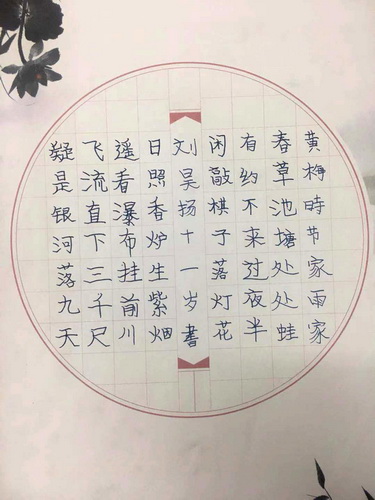 黄梅時节家雨家
春草池塘处处蛙
有约不来过夜半
闲敲棋子落灯花
刘吴扬十一岁書
日照香炉生紫烟
遥看瀑布挂前川
飞流直下三千尺
疑是银河落九天